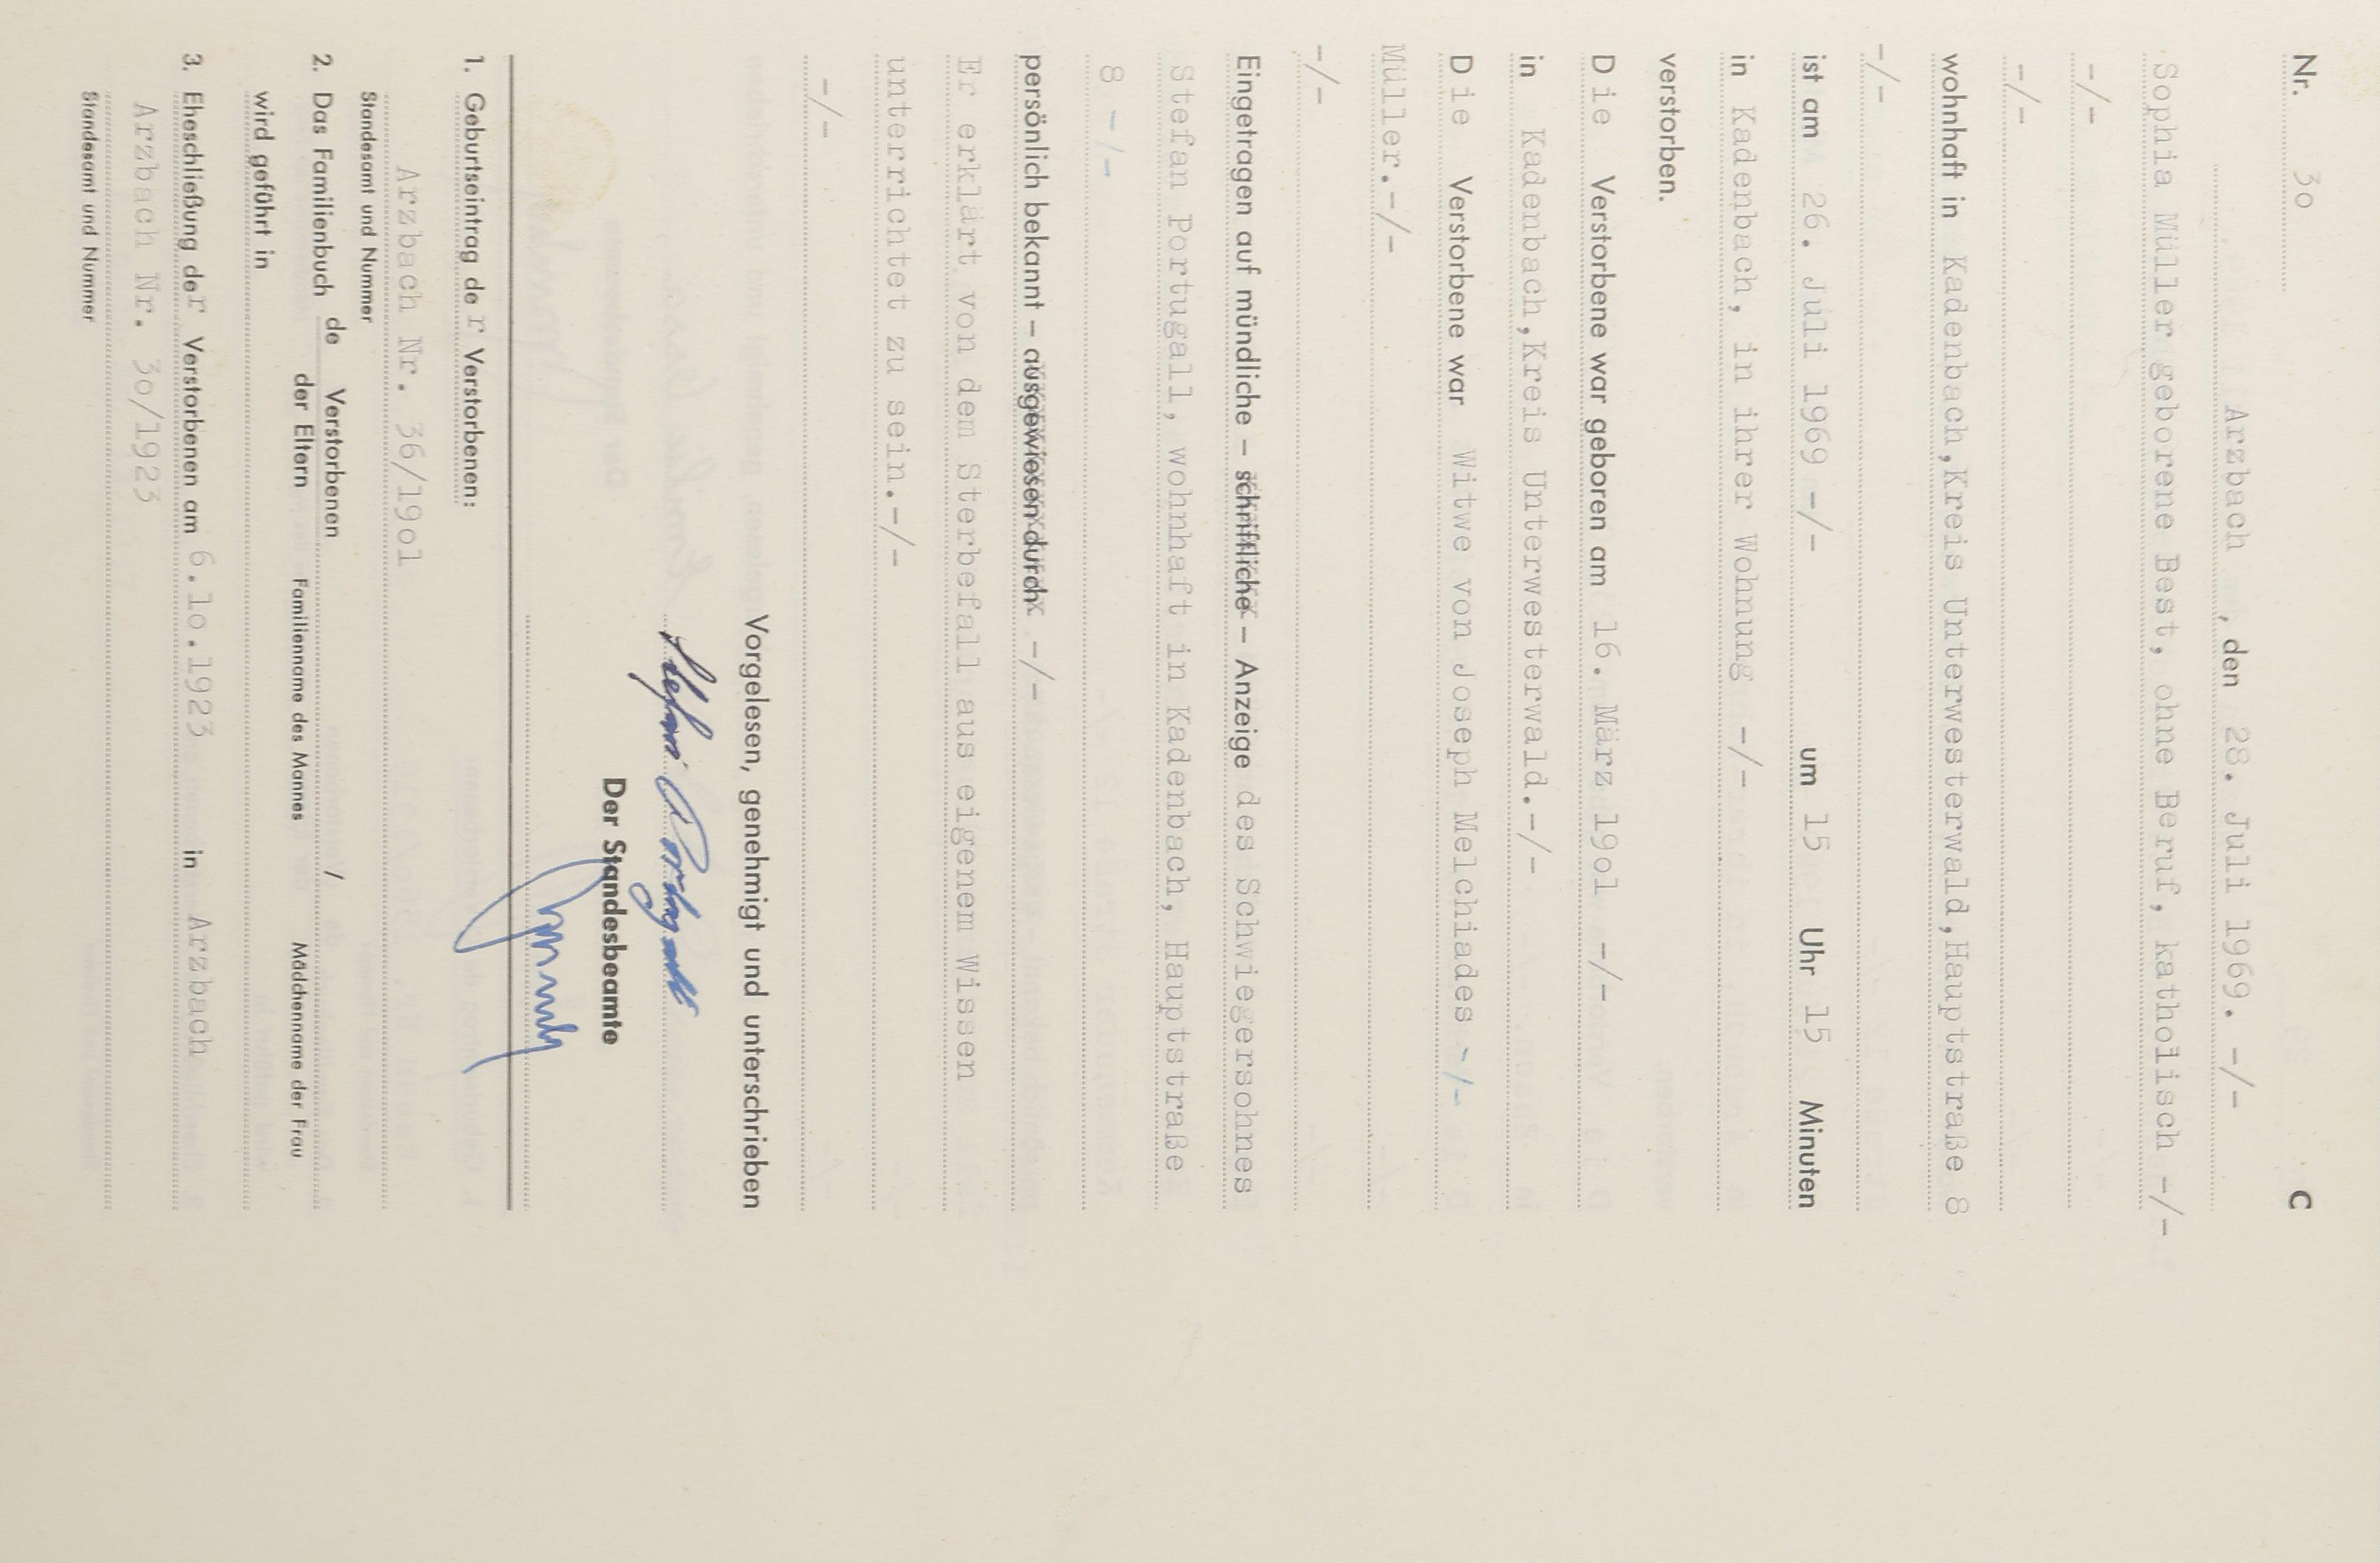 Nr. 3o C
Arzbach, den 28. Juli 1969. -/-
Sophia Müller geborene Best, ohne Beruf, katholisch -/-
-/-
-/-
wohnhaft in Kadenbach,Kreis Unterwesterwald,Hauptstraße 8
-/-
ist am 26. Juli 1969 -/- um 15 Uhr 15 Minuten
in Kadenbach, in ihrer Wohnung -/-
verstorben.
Die Verstorbene war geboren am 16. März 19ol -/-
in Kadenbach,Kreis Unterwesterwald.-/-
Die Verstorbene war Witwe von Joseph Melchiades -/-
Müller.-/-
-/-
Eingetragen auf mündliche – schriftliche – Anzeige des Schwiegersohnes
Stefan Portugall, wohnhaft in Kadenbach, Hauptstraße
8 -/-
persönlich bekannt – ausgewiesen durch -/-
Er erklärt von dem Sterbefall aus eigenem Wissen
unterrichtet zu sein.-/-
-/-
Vorgelesen, genehmigt und unterschrieben
Stefan Portugall
Der Standesbeamte
1. Geburtseintrag der Verstorbenen:
Arzbach Nr. 36/19ol
Standesamt und Nummer
2. Das Familienbuch de Verstorbenen /
der Eltern Familienname des Mannes Mädchenname der Frau
wird geführt in
3. Eheschließung der Verstorbenen am 6.lo.1923 in Arzbach
Arzbach Nr. 3o/1923
Standesamt und Nummer